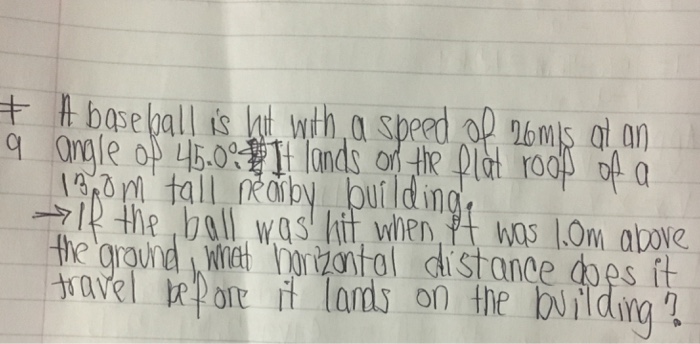 # A baseball is hit with a speed of 26m/s at an
9 angle of 45.0°. It lands on the flat roof of a
13.0m tall nearby building.
→If the ball was hit when it was 1.0m above
the ground, what horizontal distance does it
travel before it lands on the building?